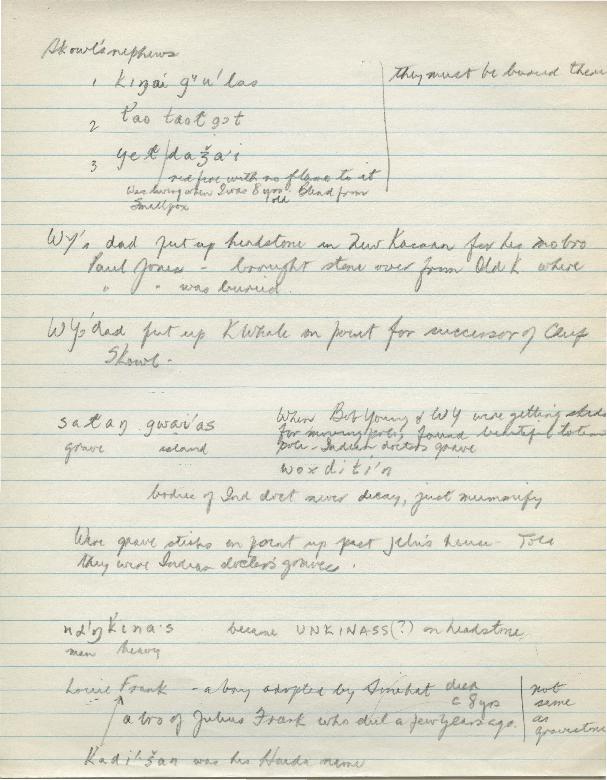 Skowl's nephews
1 kiŋai gʷu'las
they must be buried there
2 t'ao taot got
3 yet daʒa'i
red fire with no flame to it
Was living when I was 8 yrs old. Blind from
Smallpox
WY's dad put up headstone in New Kasaan for his mobro
Paul Jones - brought stone over from Old K where
" " was buried.
WY's dad put up K Whale on point for successor of Chief
Skowl -
satan gwai'as
grave island
When Bob Young & WY were getting skids
for moving poles, found beautiful totem
pole - Indian doctors grave
woxditi'n
bodies of Ind doct never decay, just mummify
Were grave sticks on point up past John's house - Told
they were Indian doctor's graves.
na'ŋkina's became UNKINASS(?) on headstone.
man heavy
Louie Frank - a boy adopted by died
c 8 yrs
a bro of Julius Frank who died a few years ago.
not
same
as
gravestone
Kadi'ʒan was his Haida name